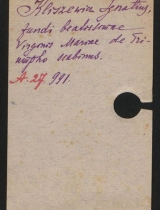 Kliszewicz Ignatius,
fundi beatissimae
Virginis Mariae de Tri-
umpho scabinus.
A. 27, 991.